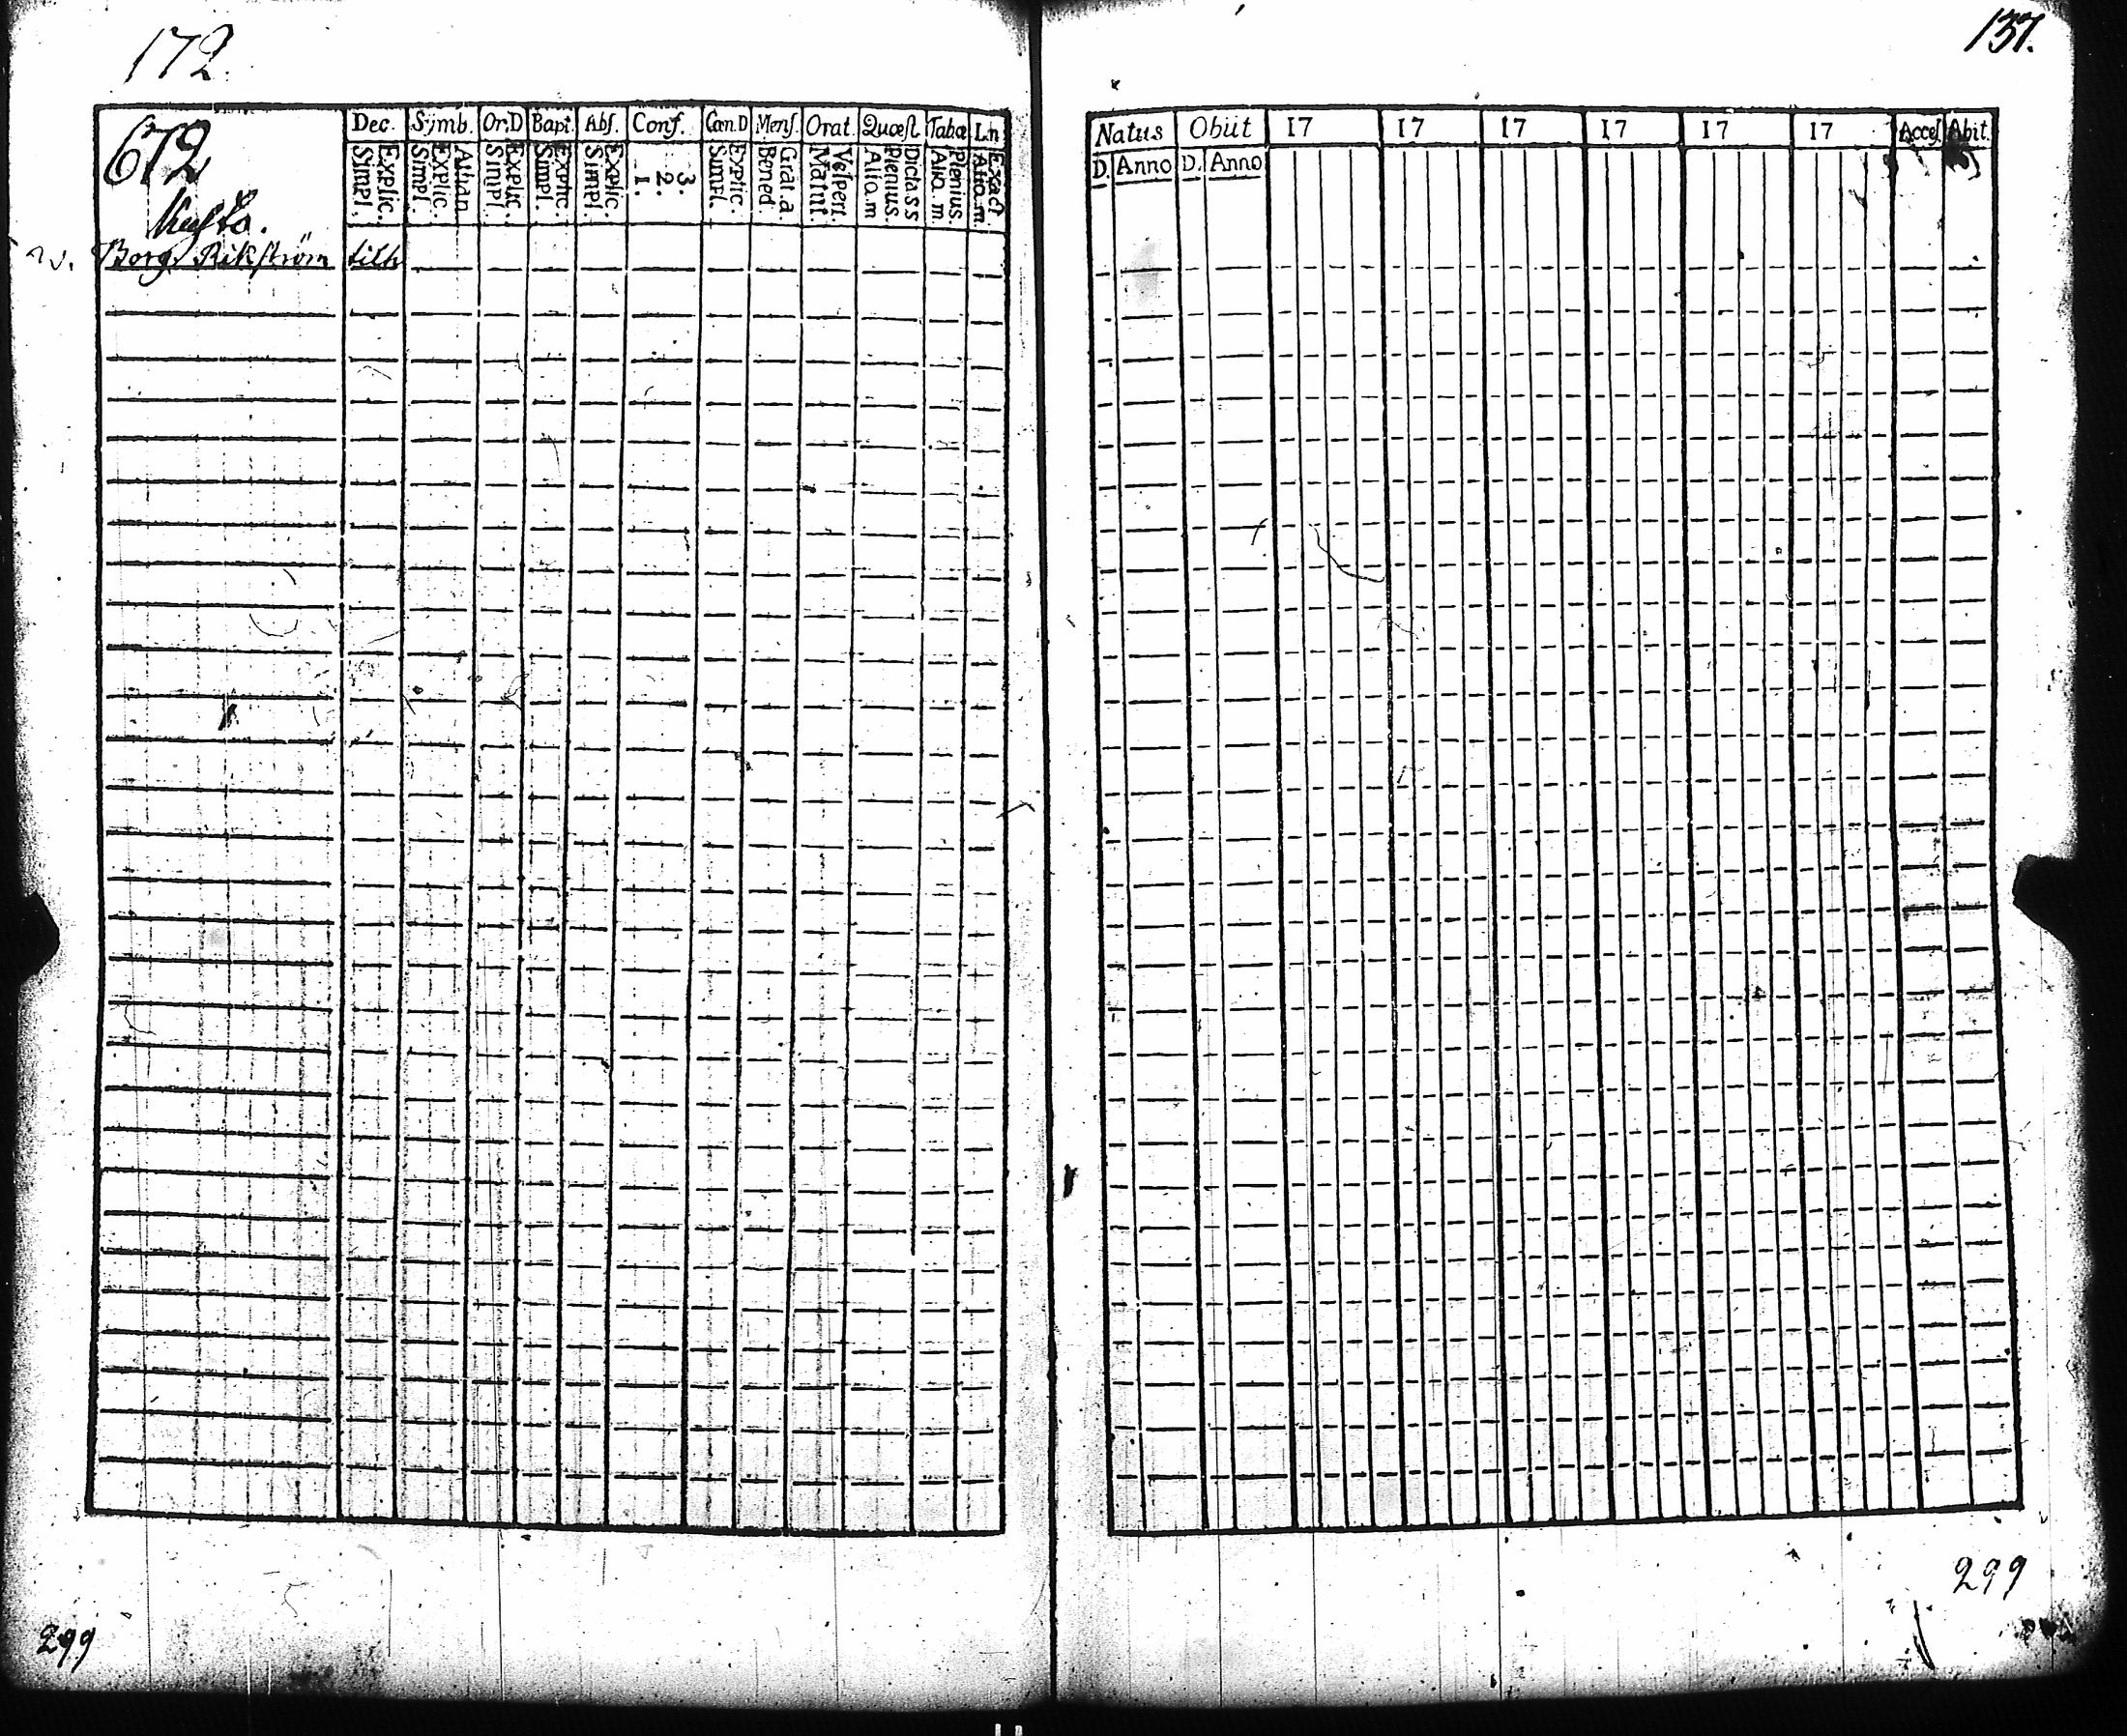 172.
137.
672
Dec. Symb. Or.D Bapt. Abſ. Conf. Can.D Menſ. Orat. Quœſt Tabœ
Simpl. Explic. Simpl. Explic. Athan. Simpl. Explic. Simpl. Explic. Simpl. Explic. 1. 2. 3. Simpl. Explic. Bened. Grat. a. Matut. Veſpert. Alio. m Plenius. Dicta. s s Alio. m. Plenius. Alio. m. Exact
Borg. Rikſtröm tilh
Natus Obiit 17 17 17 17 17 17 Acceſ. Abit.
D. Anno D. Anno
299
299